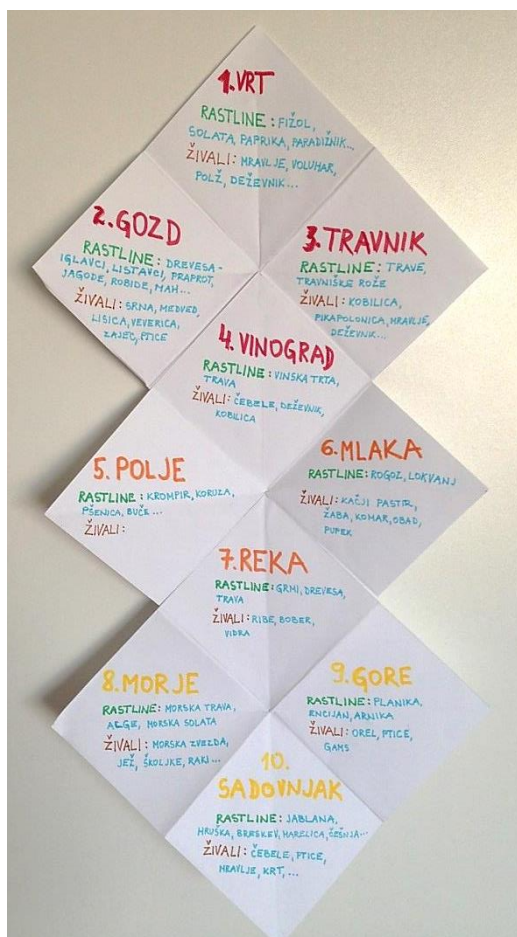 1. VRT
RASTLINE: FIŽOL,
SOLATA, PAPRIKA, PARADIŽNIK...
ŽIVALI: MRAVLJE, VOLUHAR,
POLŽ, DEŽEVNIK...
2. GOZD
RASTLINE: DREVESA -
IGLAVCI, LISTAVCI, PRAPROT,
JAGODE, ROBIDE, MAH...
ŽIVALI: SRNA, MEDVED,
LISICA, VEVERICA,
ZAJEC, PTICE
3. TRAVNIK
RASTLINE: TRAVE,
TRAVNIŠKE ROŽE
ŽIVALI: KOBILICA,
PIKAPOLONICA, MRAVLJE,
DEŽEVNIK...
4. VINOGRAD
RASTLINE: VINSKA TRTA,
TRAVA
ŽIVALI: ČEBELE, DEŽEVNIK,
KOBILICA
5. POLJE
RASTLINE: KROMPIR, KORUZA,
PŠENICA, BUČE...
ŽIVALI:
6. MLAKA
RASTLINE: ROGOZ, LOKVANJ
ŽIVALI: KAČJI PASTIR,
ŽABA, KOMAR, OBAD,
PUPEK
7. REKA
RASTLINE: GRMI, DREVESA,
TRAVA
ŽIVALI: RIBE, BOBER,
VIDRA
8. MORJE
RASTLINE: MORSKA TRAVA,
ALGE, MORSKA SOLATA
ŽIVALI: MORSKA ZVEZDA,
JEŽ, ŠKOLJKE, RAKI...
9. GORE
RASTLINE: PLANIKA,
ENCIJAN, ARNIKA
ŽIVALI: OREL, PTICE,
GAMS
10.
SADOVNJAK
RASTLINE: JABLANA,
HRUŠKA, BRESKEV, MARELICA, ČEŠNJA...
ŽIVALI: ČEBELE, PTICE,
MRAVLJE, KRT, ...